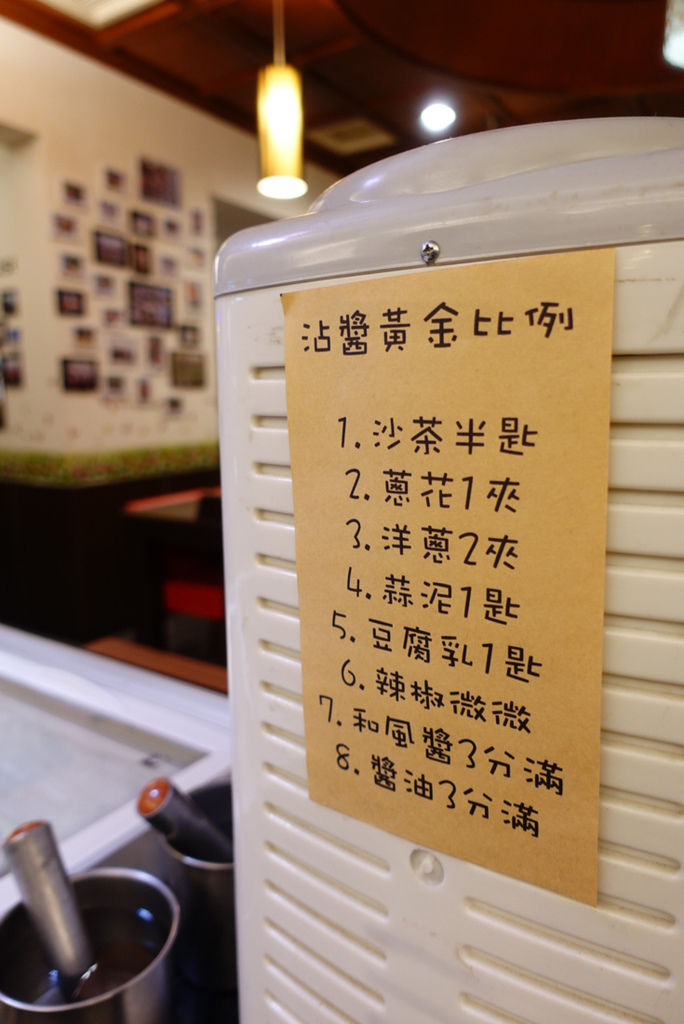 沾醬黃金比例
1. 沙茶半匙
2. 蔥花1夾
3. 洋蔥2夾
4. 蒜泥1匙
5. 豆腐乳1匙
6. 辣椒微微
7. 和風醬3分滿
8. 醬油3分滿